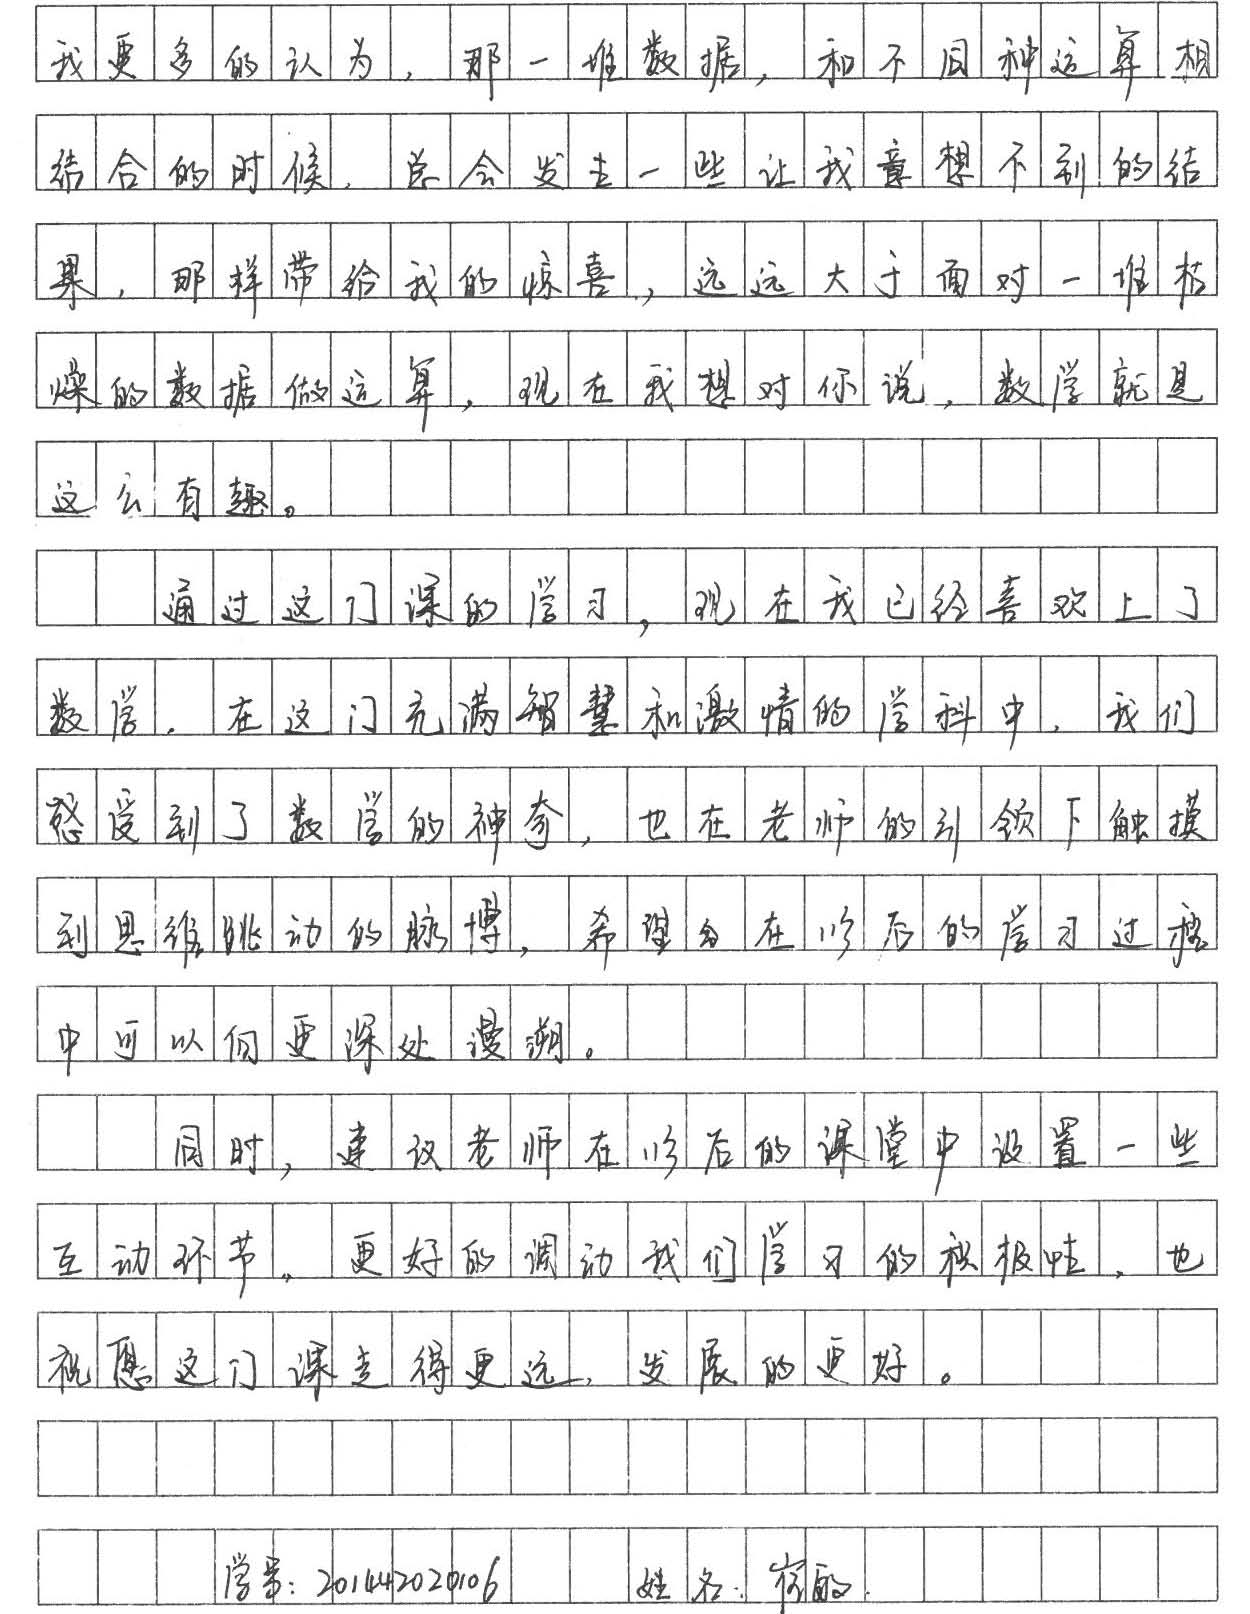 我更多的认为，那一堆数据，和不同种运算相
结合的时候，总会发生一些让我意想不到的结
果，那样带给我的惊喜，远远大于面对一堆枯
燥的数据做运算，现在我想对你说，数学就是
这么有趣。
通过这门课的学习，现在我已经喜欢上了
数学，在这门充满智慧和激情的学科中，我们
感受到了数学的神奇，也在老师的引领下触摸
到思维跳动的脉搏，希望会在以后的学习过程
中可以向更深处漫溯。
同时，建议老师在以后的课堂中设置一些
互动环节，更好的调动我们学习的积极性，也
祝愿这门课走得更远，发展的更好。
学号：201442020106 姓名：